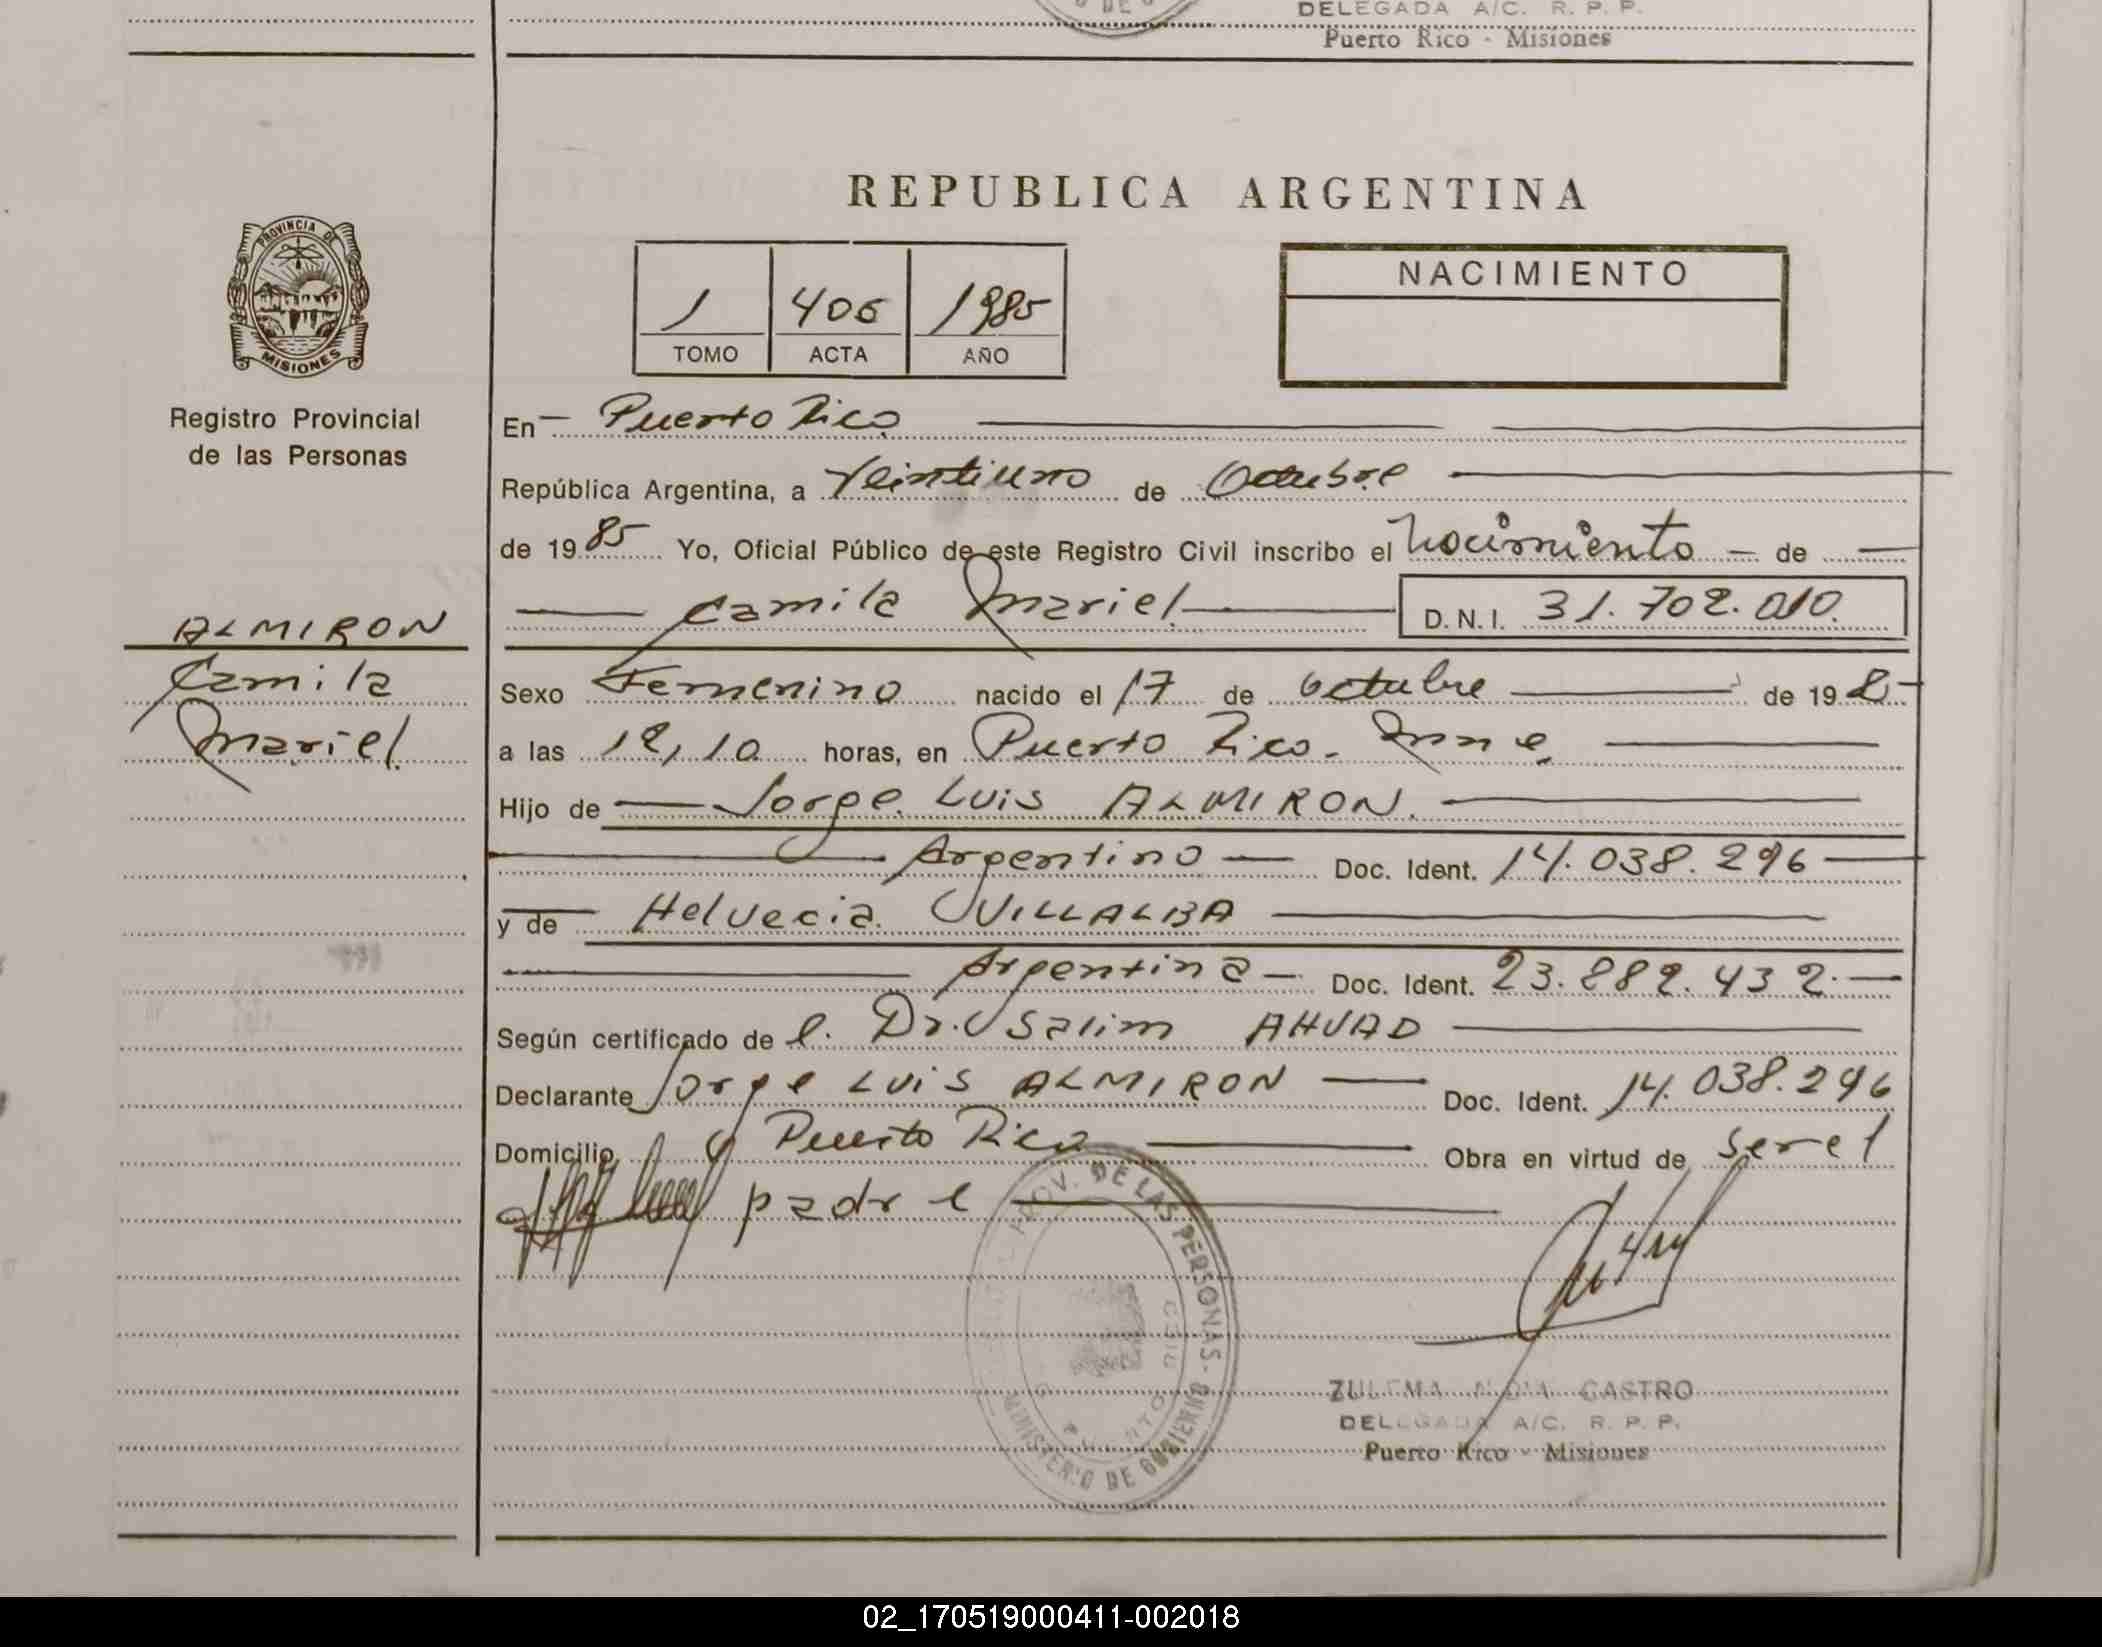 DELEGADA A/C. R. P. P.
Puerto Rico - Misiones
REPUBLICA ARGENTINA
PROVINCIA DE
MISIONES
Registro Provincial
de las Personas
1 406 1985
TOMO ACTA AÑO
NACIMIENTO
En - Puerto Rico
República Argentina, a Veintiuno de Octubre
de 19 85 Yo, Oficial Público de este Registro Civil inscribo el Nacimiento - de
Camila Mariel. D. N. I. 31.702.010.
ALMIRON
Camila
Mariel.
Sexo Femenino nacido el 17 de Octubre de 19
a las 12,10 horas, en Puerto Rico.
Hijo de Jorge Luis ALMIRON.
Argentino Doc. Ident. 14.038.296
y de Helvecia VILLALBA
Argentina Doc. Ident. 23.882.432.
Según certificado de l. Dr. Salim AHUAD
Declarante Jorge Luis ALMIRON Doc. Ident. 14.038.296
Domicilio Puerto Rico Obra en virtud de ser el
padre
PROV. DE LAS PERSONAS
MINISTERIO DE GOBIERNO
ZULEMA CASTRO
DELEGADA A/C. R. P. P.
Puerto Rico - Misiones
02_170519000411-002018